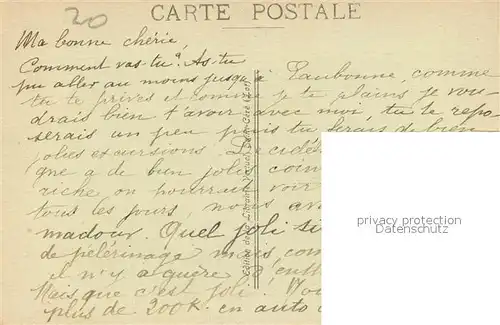 20
CARTE POSTALE
Ma bonne chérie,
Comment vas-tu? As-tu
pu aller au moins jusqu'à Eaubonne, comme
tu te prives et comme je te plains, je vou-
drais bien t'avoir avec moi, tu te repo-
serais un peu puis tu ferais de bien
jolies excursions. Décidé
que a de bien jolis coin
riche on pourrait voir
tous les jours, nous av
madour. Quel joli si
de pèlerinage mais com
il n'y a guère d'
Mais que c'est joli! Vou
plus de 200K. en auto
Edition de la Librairie Vertuel, Saint-Céré (Lot)
privacy protection
Datenschutz